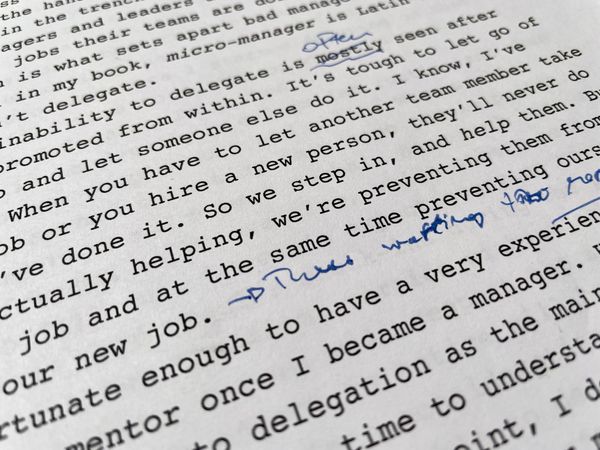 the hand
in the trenc
agers and leaders
jobs their teams are do
is what sets apart bad manage
in my book, micro-manager is Latin
't delegate.
often
inability to delegate is mostly seen after
promoted from within. It's tough to let go of
and let someone else do it. I know, I've
When you have to let another team member take
ob or you hire a new person, they'll never do
've done it. So we step in, and help them. Bu
ctually helping, we're preventing them from
job and at the same time preventing ours
our new job.
rtunate enough to have a very experien
mentor once I became a manager.
to delegation as the main
time to understa
oint, I d